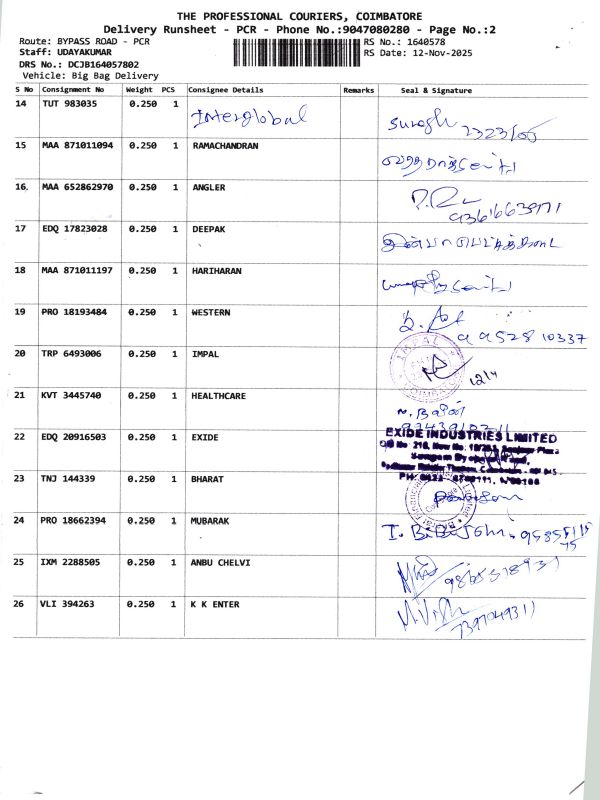 THE PROFESSIONAL COURIERS, COIMBATORE
Delivery Runsheet - PCR - Phone No.:9047080280 - Page No.:2
Route: BYPASS ROAD - PCR RS No.: 1640578
Staff: UDAYAKUMAR RS Date: 12-Nov-2025
DRS No.: DCJB164057802
Vehicle: Big Bag Delivery
S No Consignment No Weight PCS Consignee Details Remarks Seal & Signature
14 TUT 983035 0.250 1 Interglobal Suresh
15 MAA 871011094 0.250 1 RAMACHANDRAN
16. MAA 652862970 0.250 1 ANGLER
17 EDQ 17823028 0.250 1 DEEPAK
18 MAA 871011197 0.250 1 HARIHARAN
19 PRO 18193484 0.250 1 WESTERN
9952810337
20 TRP 6493006 0.250 1 IMPAL IMPAL
COIMBATORE
12/4
21 KVT 3445740 0.250 1 HEALTHCARE
22 EDQ 20916503 0.250 1 EXIDE EXIDE INDUSTRIES LIMITED
23 TNJ 144339 0.250 1 BHARAT
24 PRO 18662394 0.250 1 MUBARAK
25 IXM 2288505 0.250 1 ANBU CHELVI
26 VLI 394263 0.250 1 K K ENTER